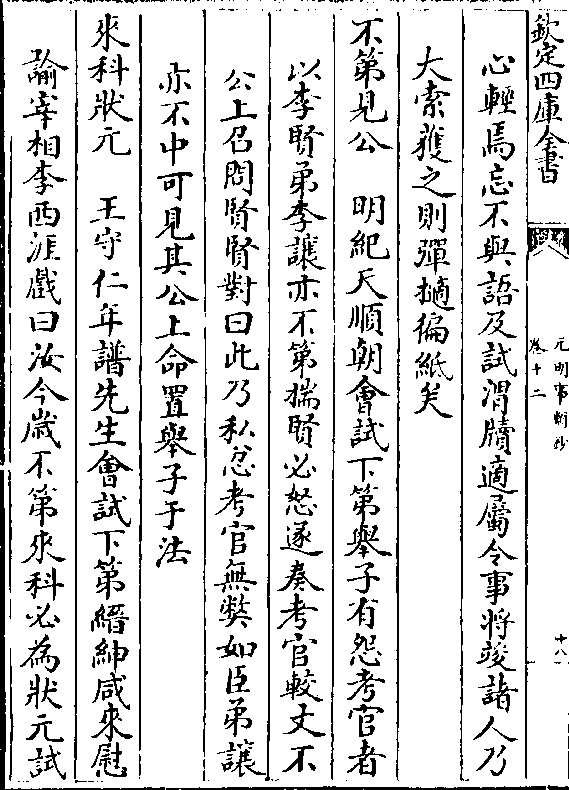 欽定四庫全書
卷十二
十八
心輕焉忘不與語及試滑牘適屬令事將竣諸人乃
大索獲之則彈擿徧紙矣
不第見公　明紀天順朝會試下第舉子有怨考官者
以李賢弟李讓亦不第揣賢必怒遂奏考官較文不
公上召問賢賢對曰此乃私忿考官無弊如臣弟讓
亦不中可見其公上命置舉子于法
來科狀元　王守仁年譜先生會試下第縉紳咸來慰
諭宰相李西涯戲曰汝今歲不第來科必為狀元試